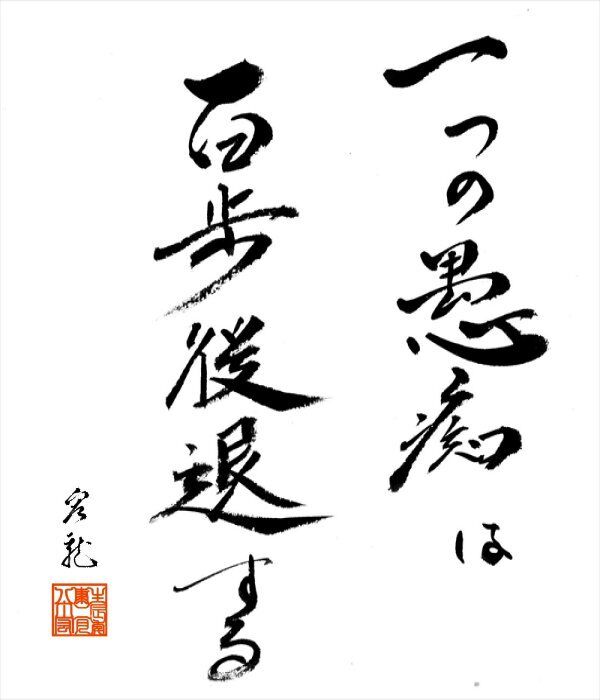 一つの愚痴は
百歩後退する